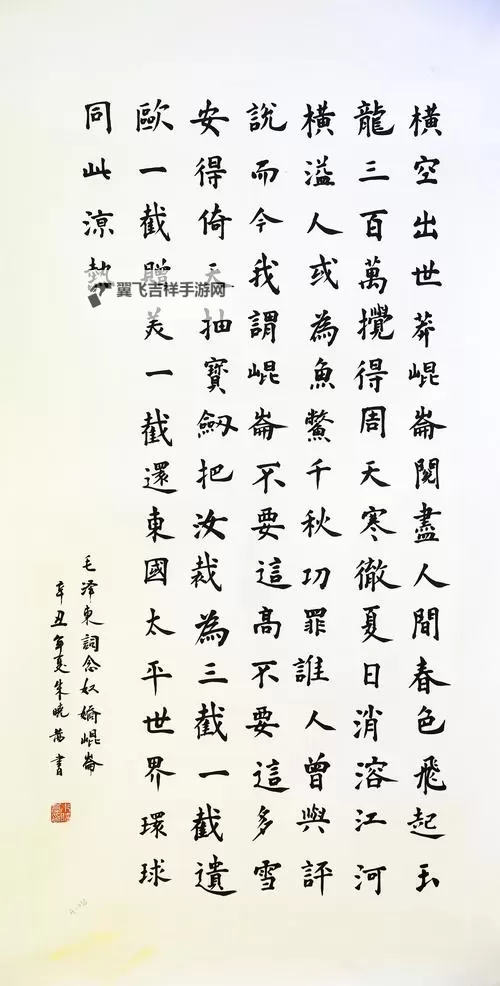 橫空出世莽崐崙閱盡人間春色飛起玉
龍三百萬攪得周天寒徹夏日消溶江河
橫溢人或為魚鱉千秋功罪誰人曾與評
說而今我謂崐崙不要這高不要這多雪
安得倚天抽寶劔把汝裁為三截一截遺
歐一截贈美一截還東國太平世界環球
同此涼熱
毛泽東詞念奴嬌崐崙
辛丑年夏朱晓書
翼飞吉祥手游网